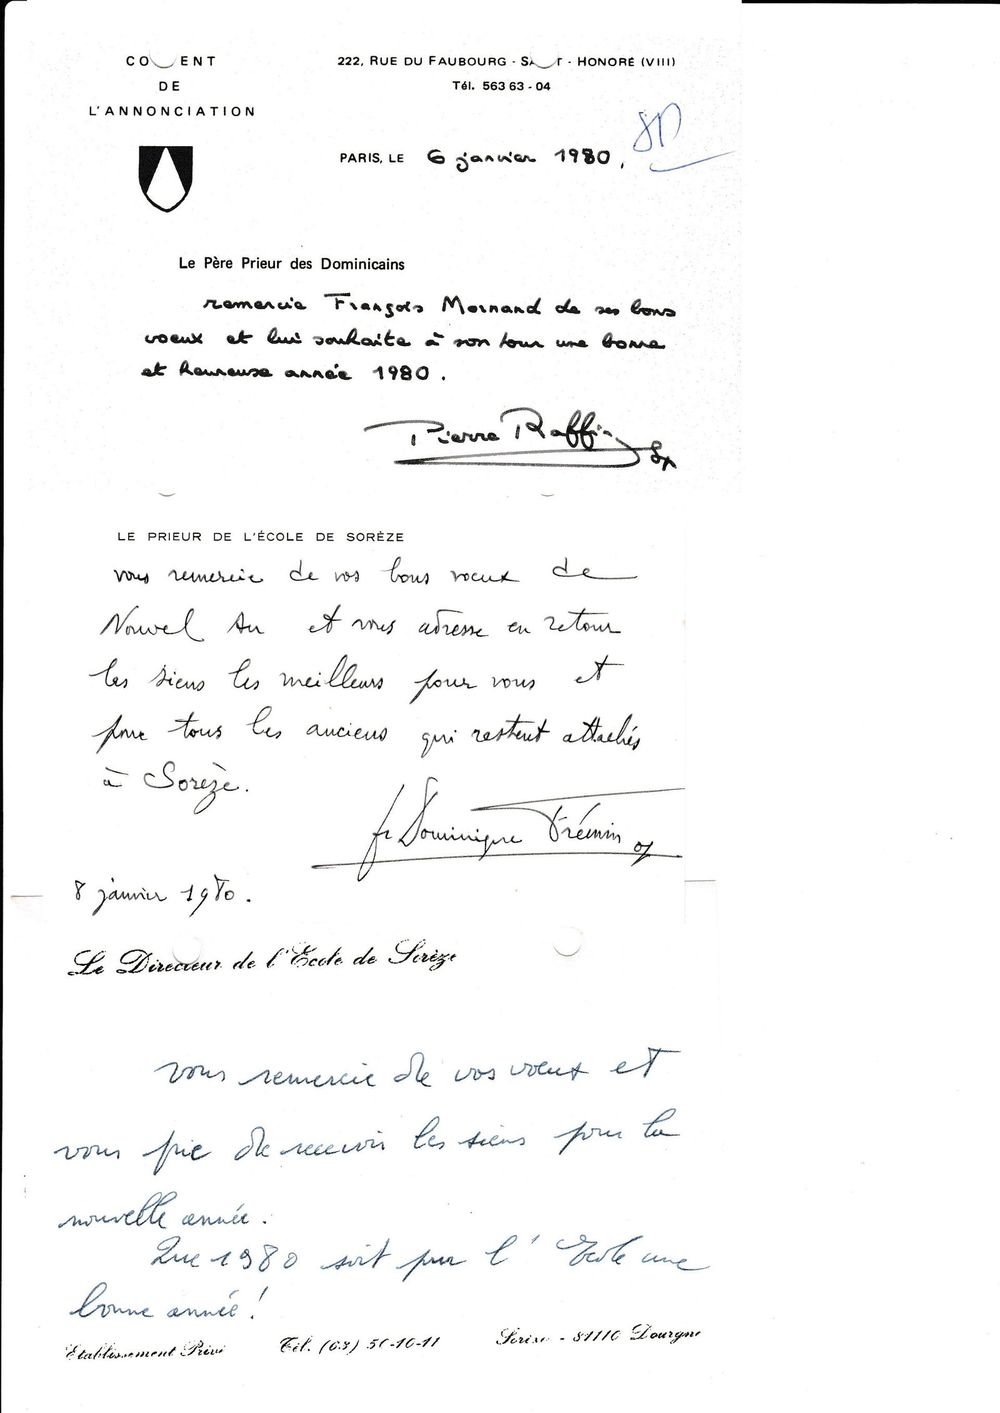 COUVENT
DE
L'ANNONCIATION
222, RUE DU FAUBOURG - SAINT - HONORÉ (VIII)
Tél. 563 63 - 04
PARIS, LE 6 janvier 1980.
Le Père Prieur des Dominicains
remercie François Mornand de ses bons
voeux et lui souhaite à son tour une bonne
et heureuse année 1980.
Pierre Raffin
LE PRIEUR DE L'ÉCOLE DE SORÈZE
vous remercie de vos bons voeux de
Nouvel An et vous adresse en retour
les siens les meilleurs pour vous et
pour tous les anciens qui restent attachés
à Sorèze.
fr Dominique Frémin op
8 janvier 1980.
Le Directeur de l'École de Sorèze
vous remercie de vos voeux et
vous prie de recevoir les siens pour la
nouvelle année.
Que 1980 soit pour l'Ecole une
bonne année!
Etablissement Privé Tél. (63) 50-10-11 Sorèze - 81110 Dourgne